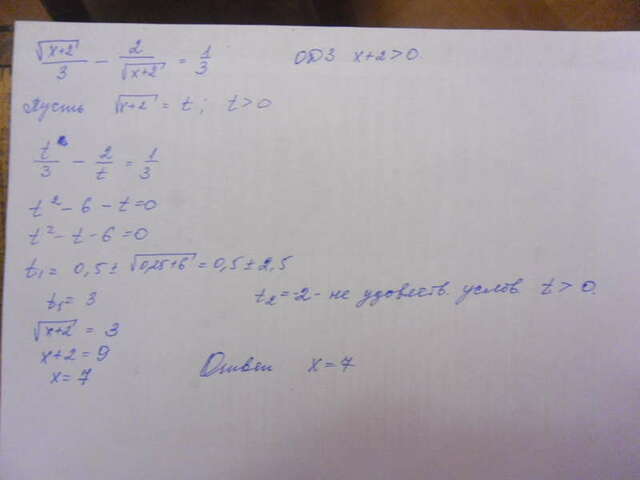 √(x+2)/3 − 2/√(x+2) = 1/3 ОДЗ x+2>0.
Пусть √(x+2) = t; t>0
t/3 − 2/t = 1/3
t² − 6 − t = 0
t² − t − 6 = 0
t₁ = 0,5 ± √(0,25+6) = 0,5 ± 2,5
t₁ = 3 t₂ = -2 - не удовлетв. услов. t > 0.
√(x+2) = 3
x+2 = 9
x = 7 Ответ x = 7